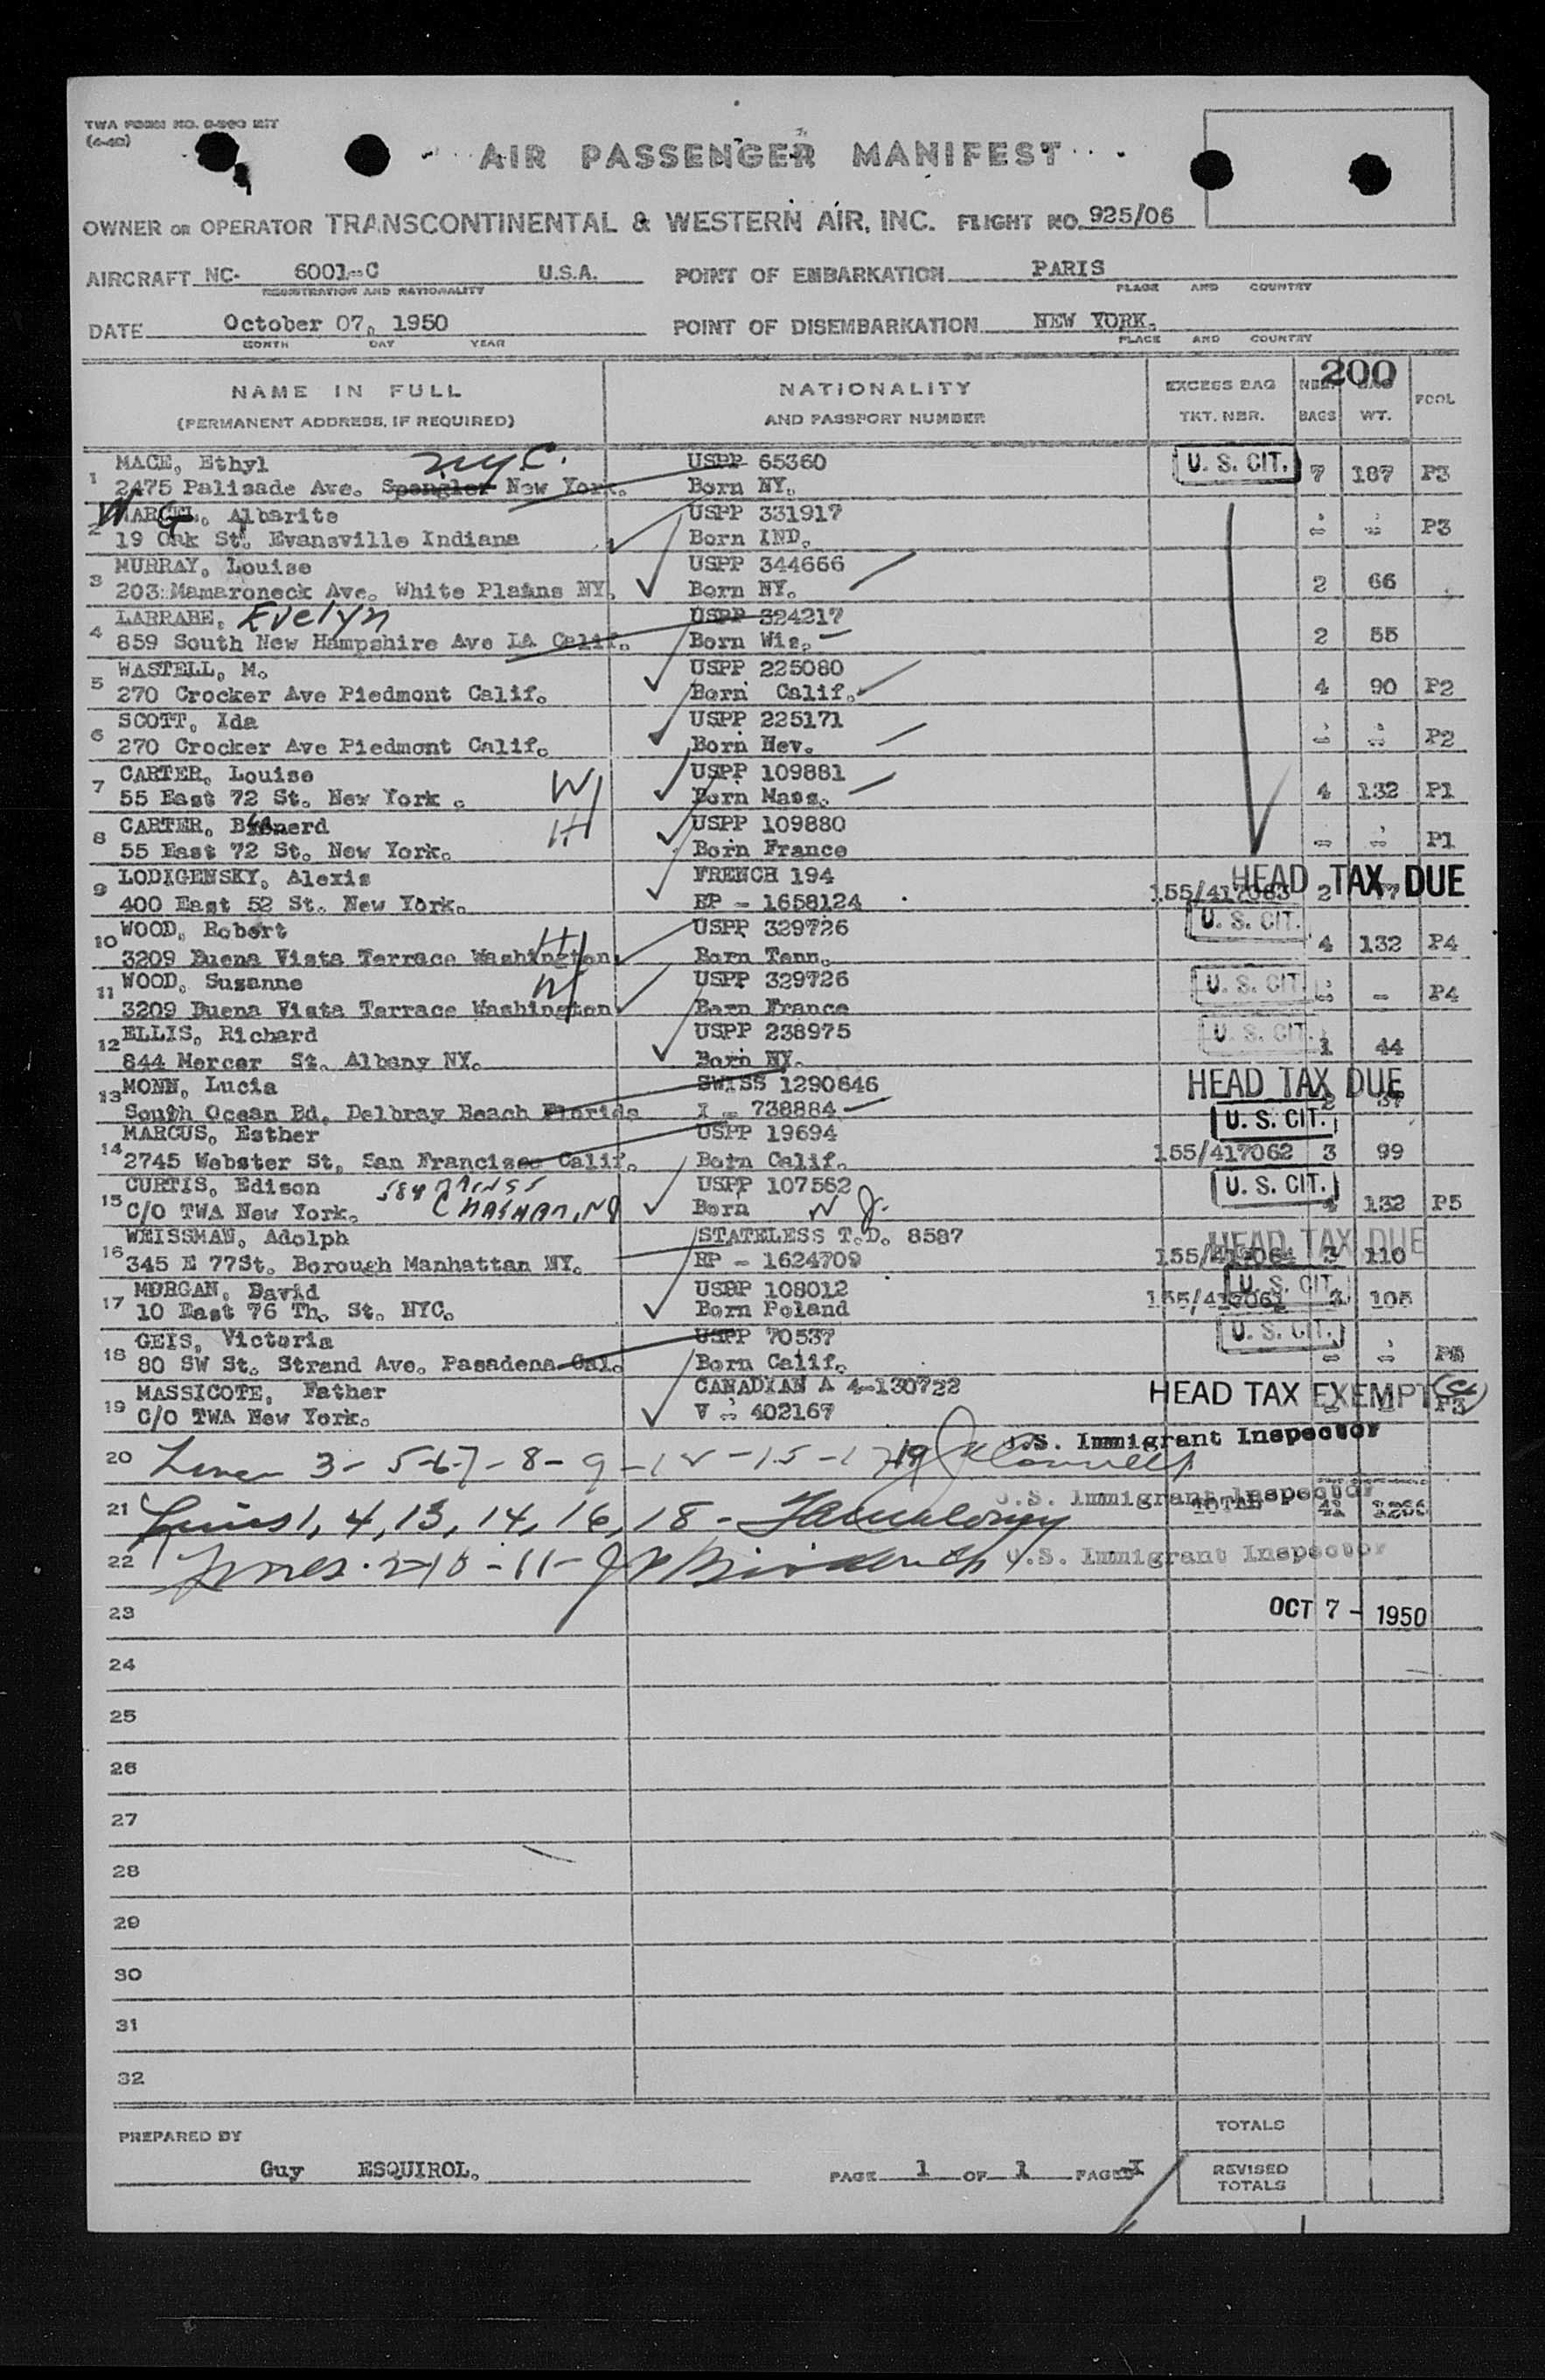 TWA FORM NO.
AIR PASSENGER MANIFEST
OWNER OR OPERATOR TRANSCONTINENTAL & WESTERN AIR, INC. FLIGHT NO. 925/06
AIRCRAFT NC- 6001-C U.S.A. POINT OF EMBARKATION PARIS
REGISTRATION AND NATIONALITY PLACE AND COUNTRY
DATE October 07, 1950 POINT OF DISEMBARKATION NEW YORK.
MONTH DAY YEAR PLACE AND COUNTRY
200
NAME IN FULL NATIONALITY EXCESS BAG NBR. BAG POOL
(PERMANENT ADDRESS, IF REQUIRED) AND PASSPORT NUMBER TKT. NBR. BAGS WT.
MACE, Ethyl NYC. USPP 65360 U. S. CIT.
1 2475 Palisade Ave. Spengler New York. Born NY. 7 187 P3
Albarite USPP 331917
2 19 Oak St. Evansville Indiana Born IND. P3
MURRAY, Louise USPP 344666
3 203 Mamaroneck Ave. White Plains NY. Born NY. 2 66
LARRABE, Evelyn USPP 324217
4 859 South New Hampshire Ave LA Calif. Born Wis. 2 55
WASTELL, M. USPP 225080
5 270 Crocker Ave Piedmont Calif. Born Calif. 4 90 P2
SCOTT, Ida USPP 225171
6 270 Crocker Ave Piedmont Calif. Born Nev. P2
CARTER, Louise W USPP 109881
7 55 East 72 St. New York. Born Mass. 4 132 P1
CARTER, H USPP 109880
8 55 East 72 St. New York. Born France P1
LODIGENSKY, Alexis FRENCH 194 HEAD TAX DUE
9 400 East 52 St. New York. RP - 1658124 155/417063 2 77
WOOD, Robert H USPP 329726 U. S. CIT.
10 3209 Buena Vista Terrace Washington Born Tenn. 4 132 P4
WOOD, Suzanne W USPP 329726 U. S. CIT.
11 3209 Buena Vista Terrace Washington Born France - P4
ELLIS, Richard USPP 238975 U. S. CIT.
12 844 Mercer St. Albany NY. Born NY. 1 44
MONN, Lucia SWISS 1290646 HEAD TAX DUE
13 South Ocean Bd, Delbray Beach Florida I - 738884 2
MARCUS, Esther USPP 19694 U. S. CIT.
14 2745 Webster St, San Francisco Calif. Born Calif. 155/417062 3 99
CURTIS, Edison USPP 107562 U. S. CIT.
15 C/O TWA New York. Born N J. 132 P5
WEISSMAN, Adolph STATELESS T.D. 8587 HEAD TAX DUE
16 345 E 77St. Borough Manhattan NY. RP - 1624709 155/417064 3 110
MORGAN, David USPP 108012 U. S. CIT.
17 10 East 76 Th. St. NYC. Born Poland 155/417061 3 105
GEIS, Victoria USPP 70537 U. S. CIT.
18 80 SW St. Strand Ave. Pasadena Cal. Born Calif. P5
MASSICOTE, Father CANADIAN A 4-130722 HEAD TAX EXEMPT
19 C/O TWA New York. V - 402167 P3
20 U.S. Immigrant Inspector
21 Lines 1, 4, 13, 14, 16, 18 - U.S. Immigrant Inspector TOTAL 41 1266
22 Lines 2-10-11- U.S. Immigrant Inspector
23 OCT 7 - 1950
24
25
26
27
28
29
30
31
32
TOTALS
PREPARED BY
Guy ESQUIROL. PAGE 1 OF 1 PAGES
REVISED TOTALS